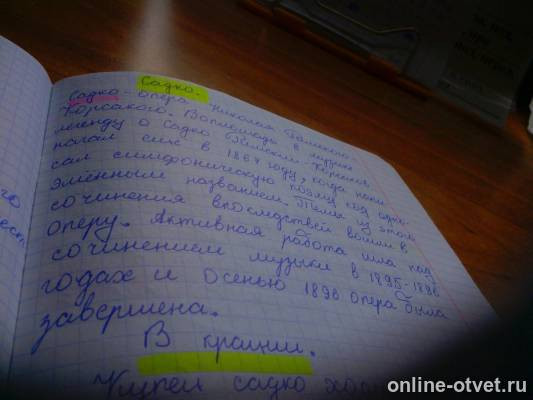 Садко.
Садко - опера Николая Римского-
Корсакого. Воплощать в музыке
легенду о Садко Римский-Корсаков
начал еще в 1867 году, когда напи-
сал симфоническую поэму под одно-
эменным названием. Темы из этого
сочинения впоследствей вошли в
оперу. Активная работа шла над
сочинением музыки в 1895-1896
годах и осенью 1896 опера была
завершена.
В крации.
Купец садко
online-otvet.ru